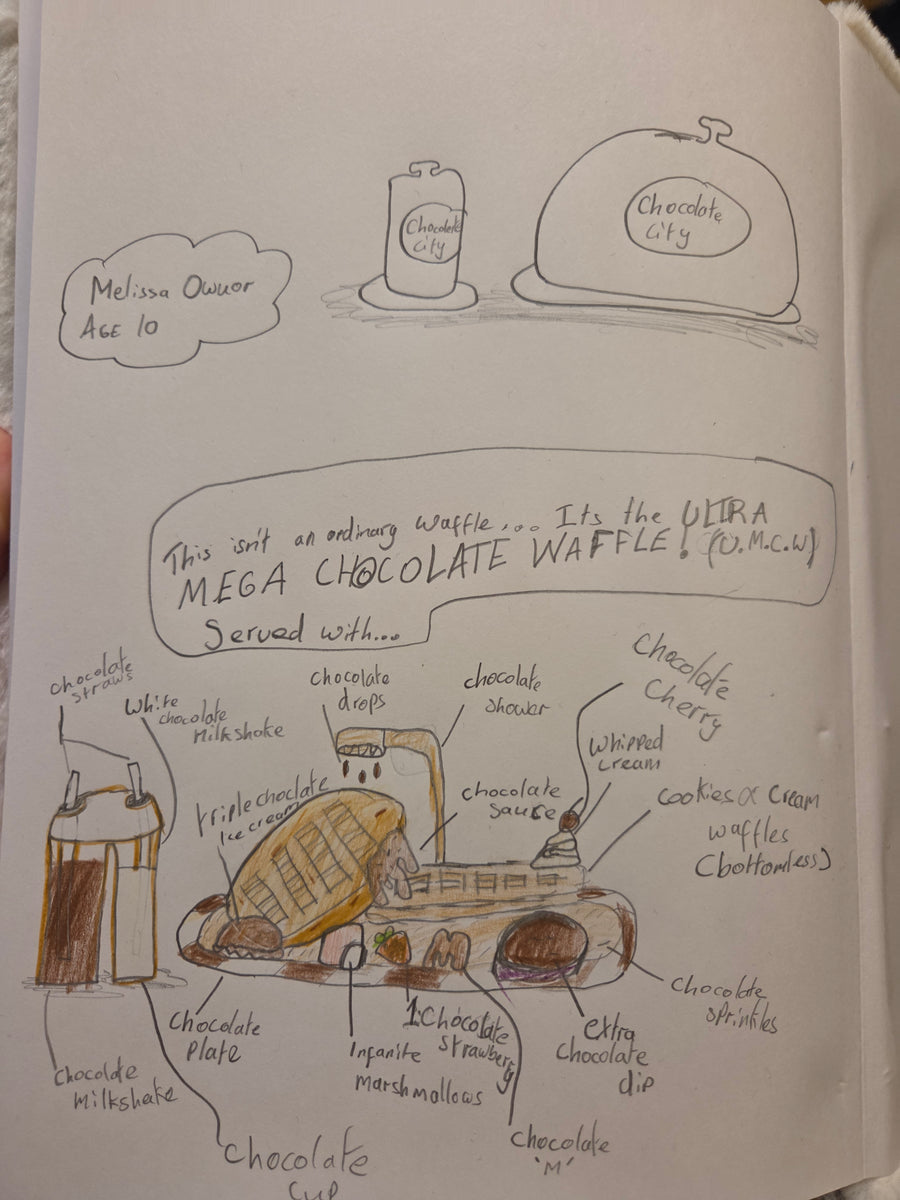 Chocolate
City
Chocolate
City
Melissa Owuor
AGE 10
This isn't an ordinary waffle... Its the ULTRA
MEGA CHOCOLATE WAFFLE! (U.M.C.W)
Served with...
chocolate
straws
White
chocolate
Milkshake
chocolate
drops
chocolate
shower
Chocolate
Cherry
whipped
cream
triple choclate
Ice cream
chocolate
sauce
cookies & cream
waffles
(bottomless)
M
chocolate
sprinkles
Chocolate
plate
Infanite
marshmallows
1 Chocolate
strawberry
extra
chocolate
dip
chocolate
milkshake
chocolate
'M'
Chocolate
cup